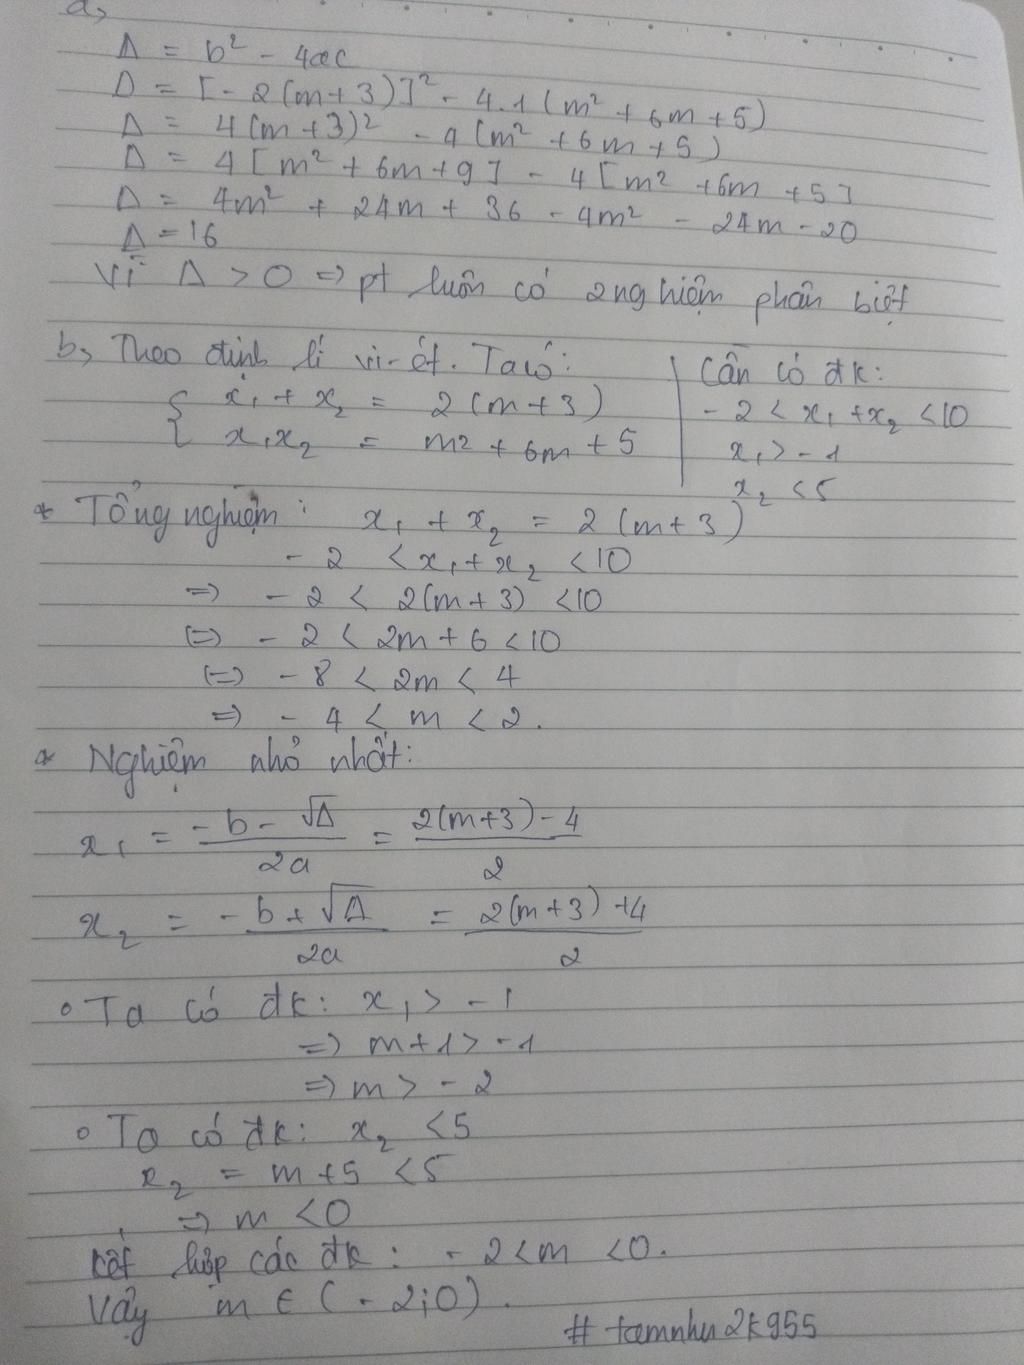 a,
Δ = b² - 4ac
Δ = [-2(m+3)]² - 4.1(m² + 6m + 5)
Δ = 4(m+3)² - 4(m² + 6m + 5)
Δ = 4[m² + 6m + 9] - 4[m² + 6m + 5]
Δ = 4m² + 24m + 36 - 4m² - 24m - 20
Δ = 16
Vì Δ > 0 => pt luôn có 2 nghiệm phân biệt
b, Theo định lí vi-ét. Ta có:
{ x₁ + x₂ = 2(m+3)
x₁x₂ = m² + 6m + 5
Cần có đk:
-2 < x₁ + x₂ < 10
x₁ > -1
x₂ < 5
* Tổng nghiệm: x₁ + x₂ = 2(m+3)
-2 < x₁ + x₂ < 10
=> -2 < 2(m+3) < 10
(=) -2 < 2m + 6 < 10
(=) -8 < 2m < 4
=> -4 < m < 2.
* Nghiệm nhỏ nhất:
x₁ = (-b - √Δ)/2a = (2(m+3) - 4)/2
x₂ = (-b + √Δ)/2a = (2(m+3) + 4)/2
o Ta có đk: x₁ > -1
=> m + 1 > -1
=> m > -2
o Ta có đk: x₂ < 5
x₂ = m + 5 < 5
=> m < 0
Kết hợp các đk: -2 < m < 0.
Vậy m ∈ (-2;0).
# tamnhu2k955